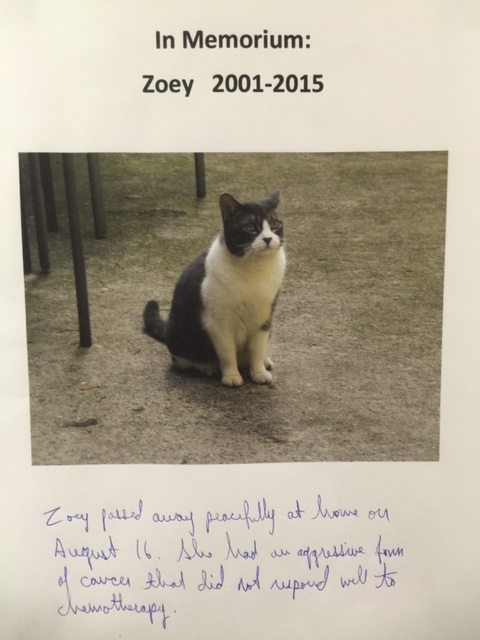 In Memorium:
Zoey 2001-2015
Zoey passed away peacefully at home on
August 16. She had an aggressive form
of cancer that did not respond well to
chemotherapy.